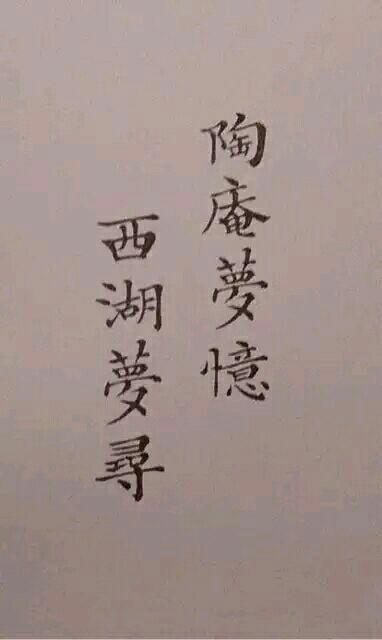 陶庵夢憶
西湖夢尋